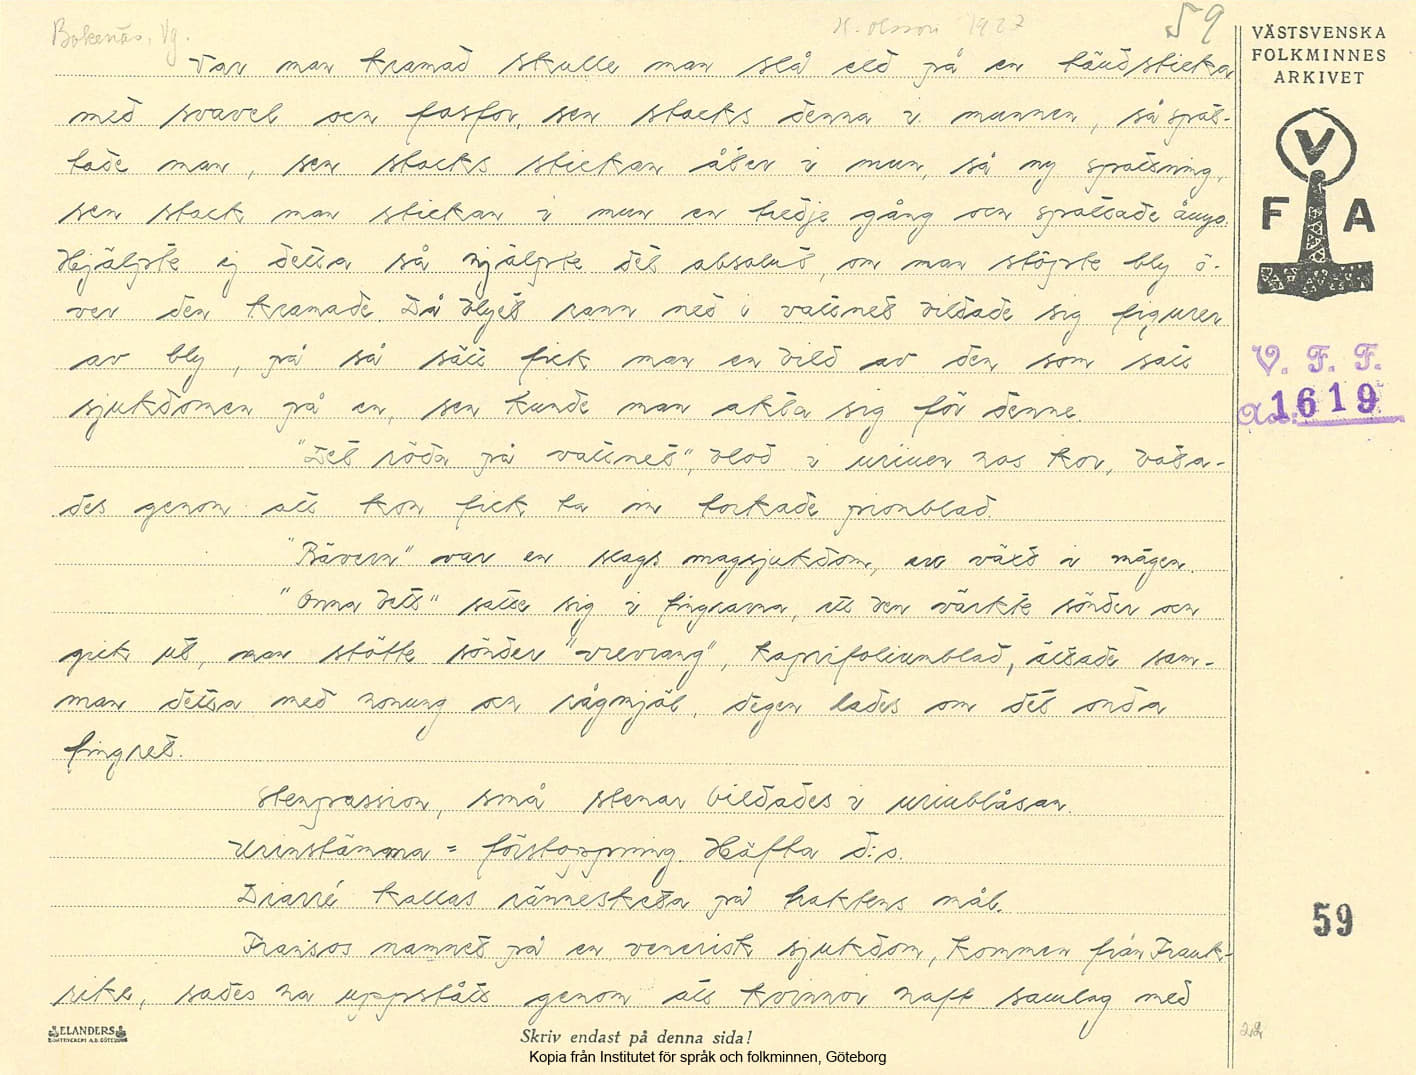 Bokenäs, Vg. H. Olsson 1927 59
Var man kramad skulle man slå eld på en tändsticka
med svavel och fosfor, sen stacks denna i munnen, så spät-
tade man, sen stacks stickan åter i mun, så ny spottning,
sen stack man stickan i mun en tredje gång och spottade ånyo.
Hjälpte ej detta så hjälpte det absolut, om man stöpte bly ö-
ver den kramade. Då blyet rann ned i vattnet bildade sig figurer
av bly, på så sätt fick man en bild av den som satt
sjukdomen på en, sen kunde man akta sig för denne.
"Det röda på vattnet", blod i urinen hos kor, bota-
des genom att kon fick ta in torkade pionblad.
"Bävern" var en slags magsjukdom, en växt i magen.
"Onna bett" satte sig i fingrarna, ett ben värkte sönder och
gick ut, man stötte sönder "vrevrang", kaprifoliumblad, ältade sam-
man detta med honung och rågmjöl, degen lades om det onda
fingret.
Stenpassion, små stenar bildades i urinblåsan.
Urinstämma = förstoppning. Häfta d:o.
Diarré kallas ränneskita på traktens mål.
Fransos namnet på en venerisk sjukdom, kommen från Frank-
rike, sades ha uppstått genom att kvinnor haft samlag med
VÄSTSVENSKA
FOLKMINNES
ARKIVET
V
F A
V. F. F.
1619
59
22
ELANDERS
Skriv endast på denna sida!
Kopia från Institutet för språk och folkminnen, Göteborg